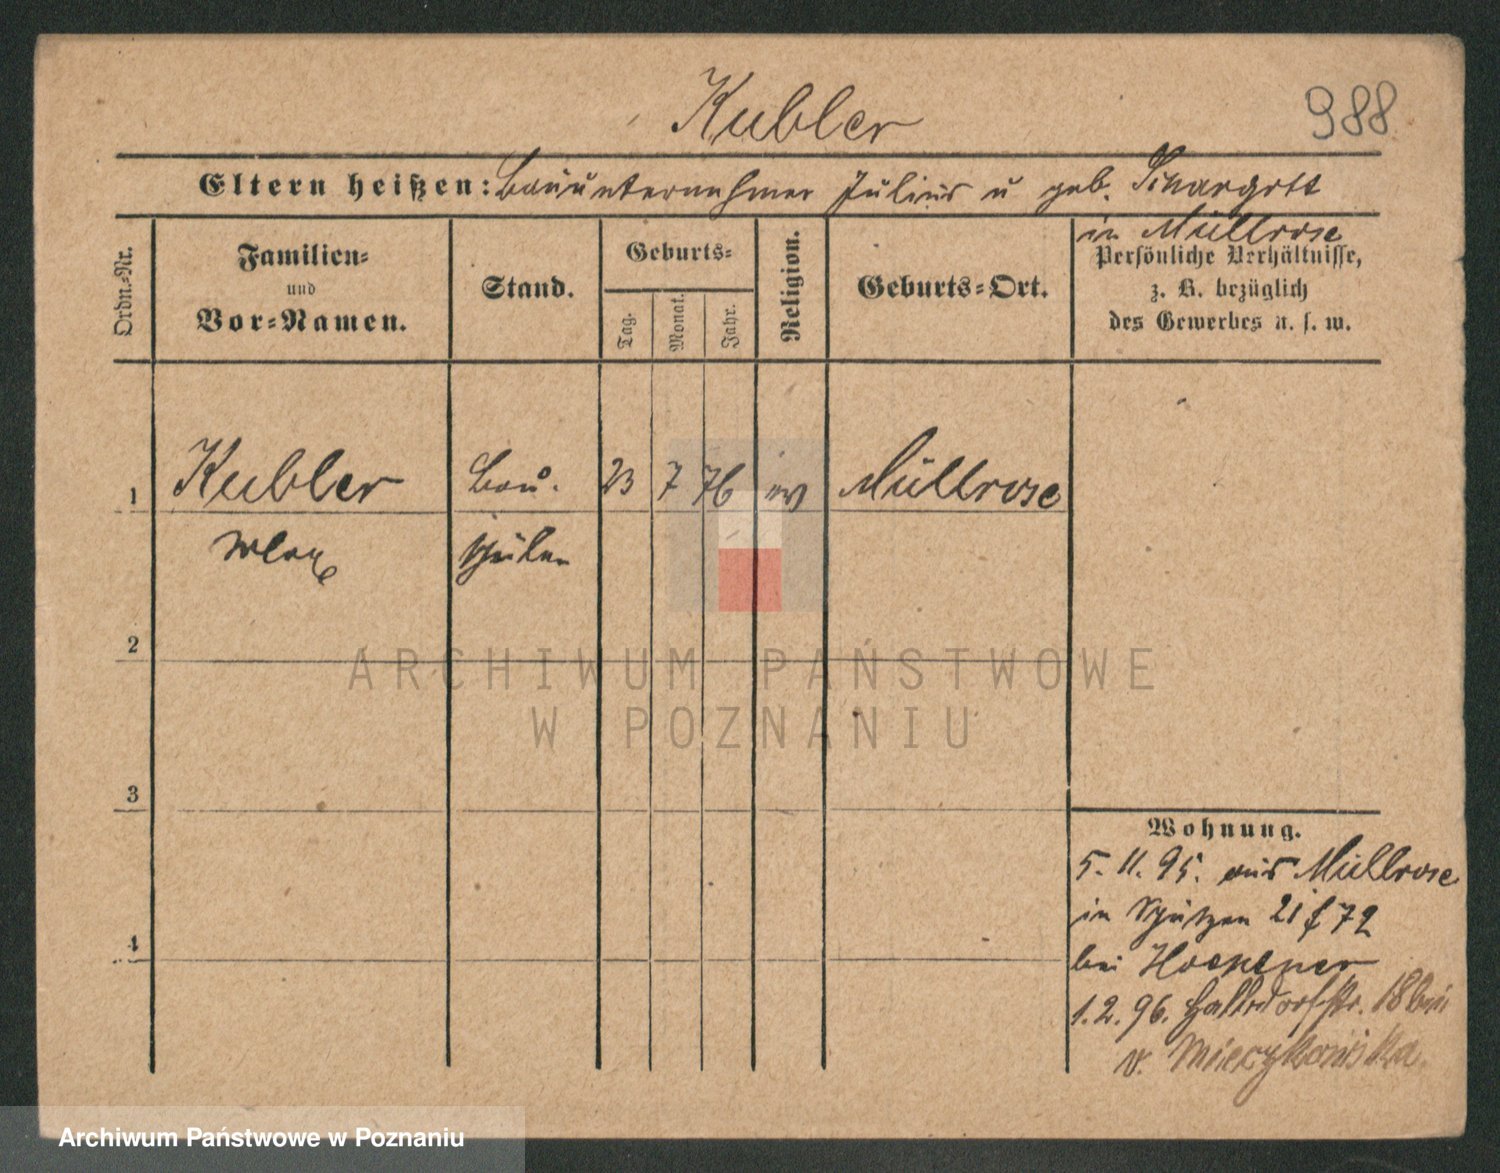 Kubler
988
Eltern heißen: Bauunternehmer Julius u geb.
in Müllrose
Ordn.-Nr.
Familien-
und
Vor-Namen.
Stand.
Geburts-
Tag.
Monat.
Jahr.
Religion.
Geburts-Ort.
Persönliche Verhältnisse,
z. B. bezüglich
des Gewerbes u. s. w.
1 Kubler Bau- 23 7 76 ev Müllrose
Max schüler
2
3
4
Wohnung.
5. 11. 95. aus Müllrose
in Schützen 21 f 72
bei Hoepener
1. 2. 96. Halbdorfstr. 18 bei
v. Mieczkowska
ARCHIWUM PAŃSTWOWE
W POZNANIU
Archiwum Państwowe w Poznaniu